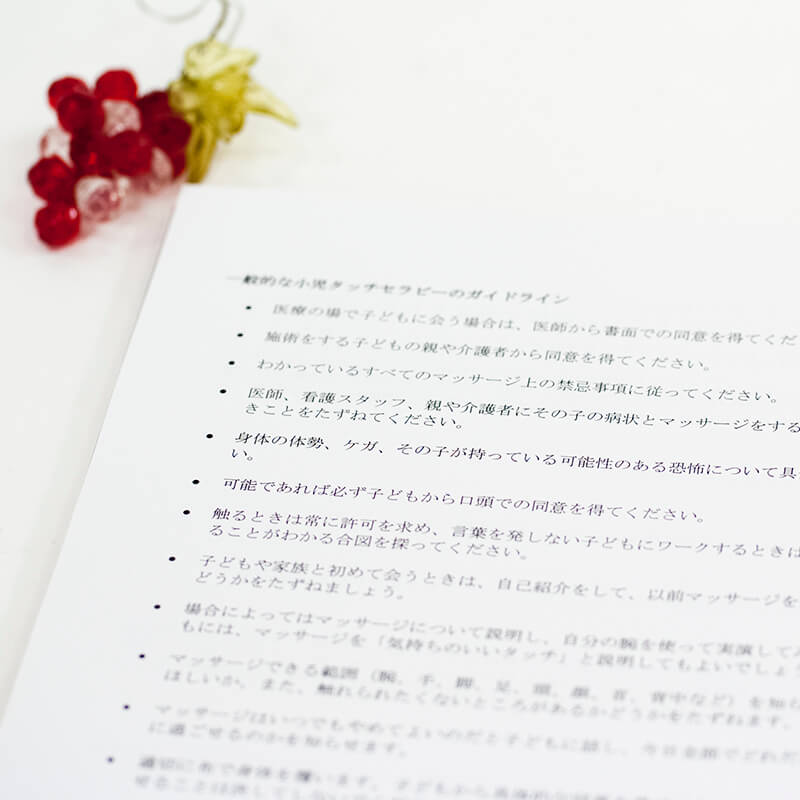 一般的な小児タッチセラピーのガイドライン
• 医療の場で子どもに会う場合は、医師から書面での同意を得てくだ
• 施術をする子どもの親や介護者から同意を得てください。
• わかっているすべてのマッサージ上の禁忌事項に従ってください。
• 医師、看護スタッフ、親や介護者にその子の病状とマッサージをする
きことをたずねてください。
• 身体の体勢、ケガ、その子が持っている可能性のある恐怖について具
い。
• 可能であれば必ず子どもから口頭での同意を得てください。
• 触るときは常に許可を求め、言葉を発しない子どもにワークするときは
ることがわかる合図を探ってください。
• 子どもや家族と初めて会うときは、自己紹介をして、以前マッサージを
どうかをたずねましょう。
• 場合によってはマッサージについて説明し、自分の腕を使って実演して
もには、マッサージを「気持ちのいいタッチ」と説明してもよいでしょ
• マッサージできる範囲（腕、手、脚、足、頭、顔、首、背中など）を知ら
ほしいか、また、触れられたくないところがあるかどうかをたずねます。
• マッサージはいつでもやめてよいのだと子どもに話し、今日全部でどれだ
に過ごせるのかを知らせます。
• 適切に布で身体を覆います。子どもから
せることは決してしないで